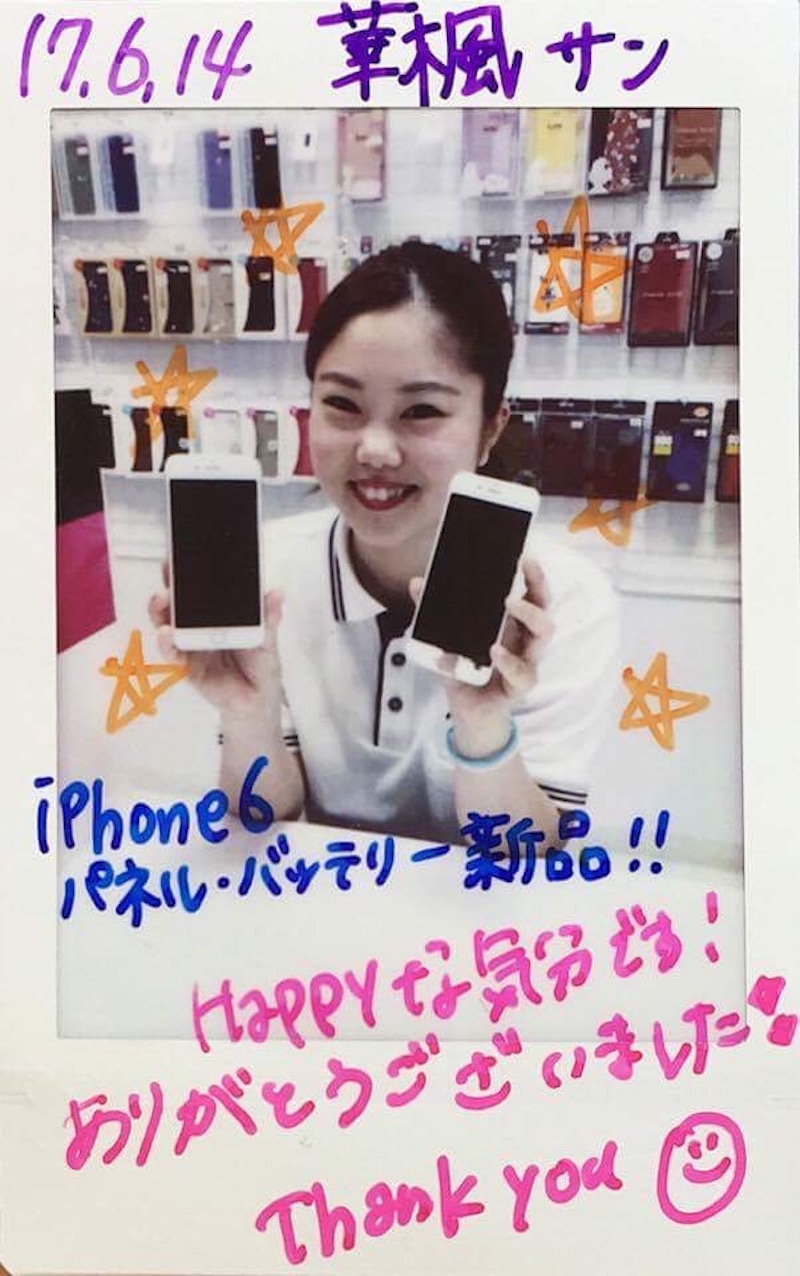 17.6.14 華楓サン
iPhone6
パネル・バッテリー新品!!
Happyな気分です!
ありがとうございました
Thank you